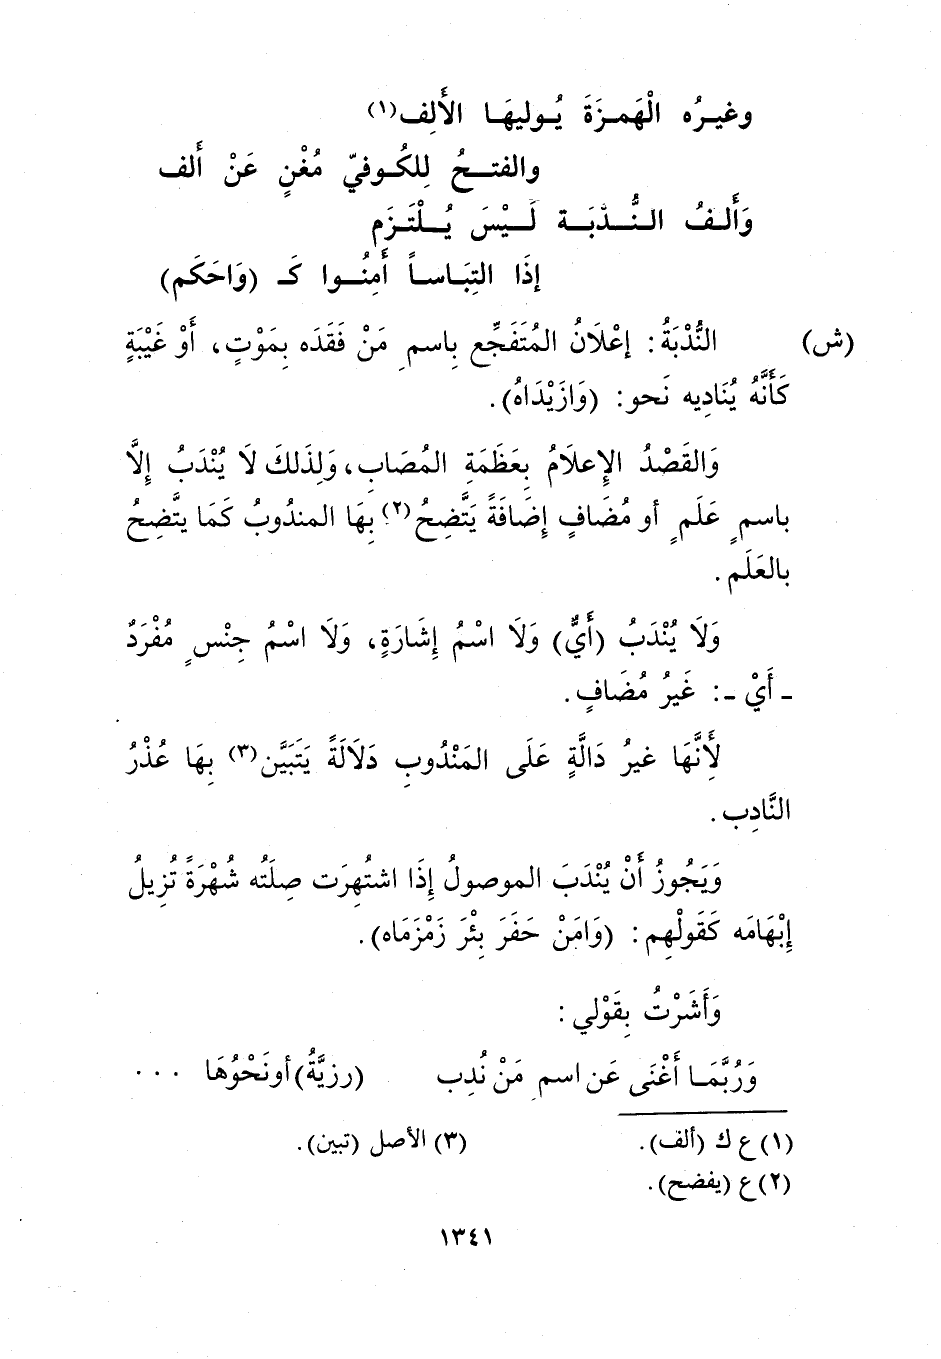 وغيرُه الْهَمزَةَ يُوليهَا الأَلِف(١)
والفتحُ لِلكُوفيّ مُغْنٍ عَنْ أَلف
وَأَلفُ النُّدْبَة لَيْسَ يُلْتَزَم
إذَا التِبَاساً أَمِنُوا كَـ (وَاحَكَم)
(ش) النُّدْبَةُ: إعْلَانُ المُتَفَجِّع بِاسمِ مَنْ فَقَدَه بِمَوْتٍ، أَوْ غَيْبَةٍ
كَأَنَّهُ يُنَادِيه نَحو: (وَازَيْدَاهُ).
وَالقَصْدُ الإعلَامُ بِعَظَمَةِ المُصَابِ، وَلِذَلكَ لَا يُنْدَبُ إلَّا
باسمٍ عَلَمٍ أو مُضَافٍ إضَافَةً يَتَّضِحُ(٢) بِهَا المندُوبُ كَمَا يتَّضِحُ
بالعَلَم.
وَلَا يُنْدَبُ (أَيٌّ) وَلَا اسْمُ إشَارَةٍ، وَلَا اسْمُ جِنْسٍ مُفْرَدٌ
ـ أَيْ ـ: غَيرُ مُضَافٍ.
لأَنَّهَا غيرُ دَالَّةٍ عَلَى المَنْدُوبِ دَلَالَةً يَتَبَيَّن(٣) بِهَا عُذْرُ
النَّادِب.
وَيَجُوزُ أَنْ يُنْدَبَ الموصولُ إذَا اشتُهِرَت صِلَتُه شُهْرَةً تُزِيلُ
إبْهَامَه كَقَولْهِم: (وَامَنْ حَفَرَ بِئْرَ زَمْزَمَاه).
وَأَشَرْتُ بِقَوْلي:
وَرُبَّمَا أَغْنَى عَن اسمِ مَنْ نُدِب (رزيَّةُ) أونَحْوُهَا ...
(١) ع ك (ألف). (٣) الأصل (تبين).
(٢) ع (يفضح).
١٣٤١